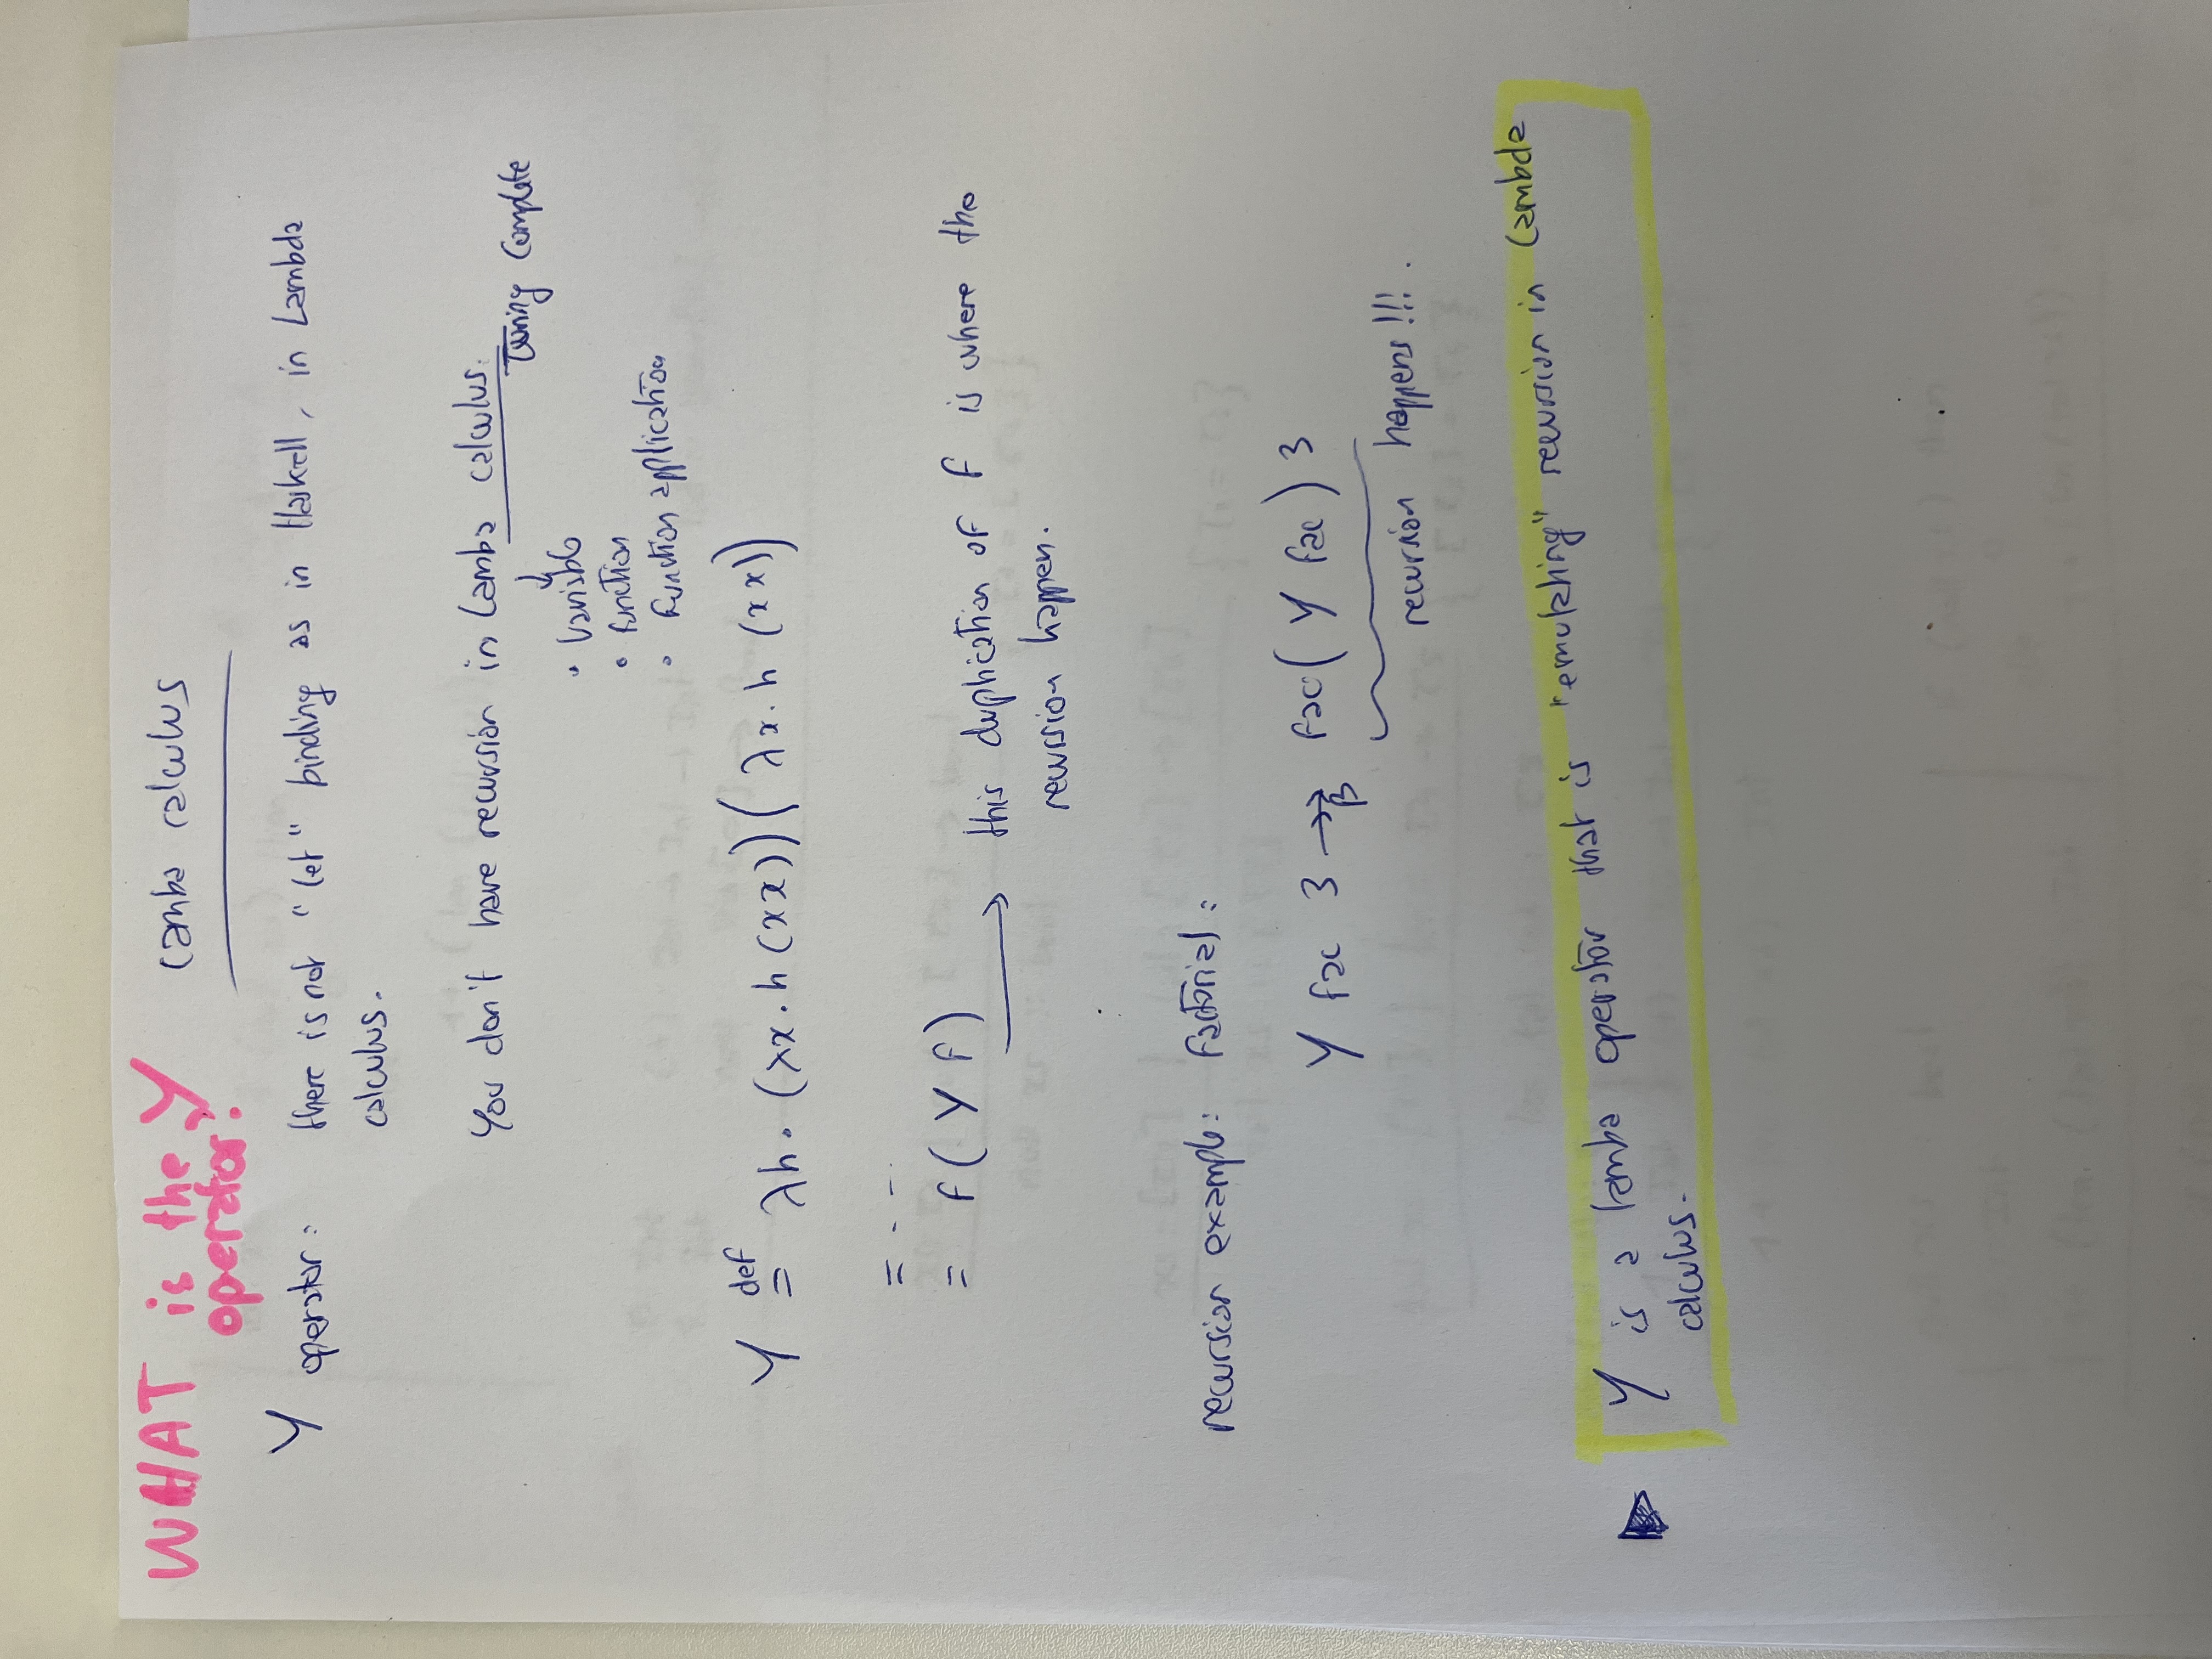 WHAT is the Y
operator?
Lamba calculus
Y operator: there is not "let" binding as in Haskell, in Lambda
calculus.
You don't have recursion in lamba calculus.
Turing Complete
• Variable
• Function
• Function application
Y def= λh. (λx. h (x x)) (λx. h (x x))
= ...
= F ( Y F )
this duplication of F is where the
recursion happen.
recursion example: Factorial:
Y fac 3 ↠β fac ( Y fac ) 3
recursion happens!!!.
Y is a lamba operator that is "emulating" recursion in Lambda
calculus.